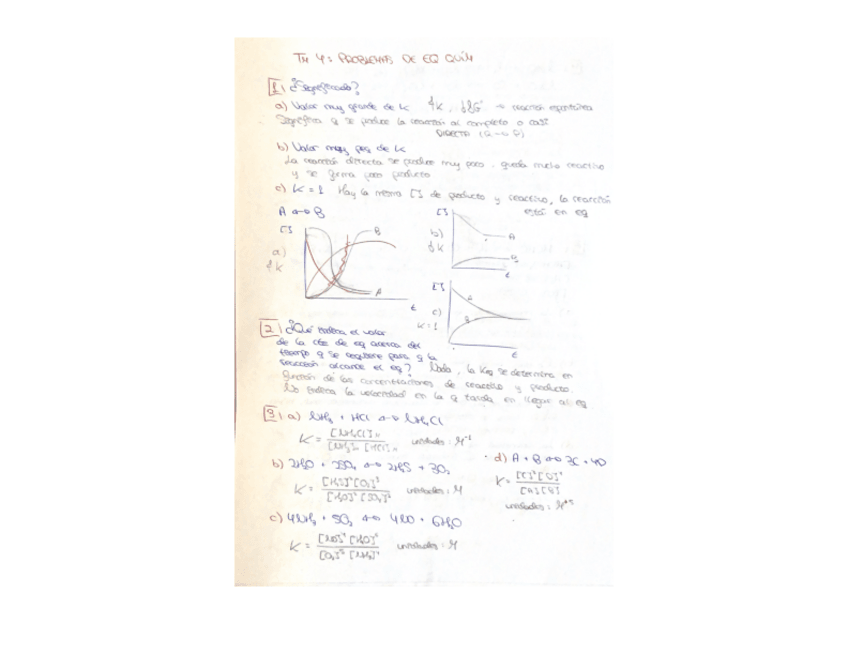 TM 4: PROBLEMAS DE EQ QUÍM
1 ¿Significado?
a) Valor muy grande de K ↑K, ↓ΔG° → reacción espontánea
Significa q se produce la reacción al completo o casi
DIRECTA (R → P)
b) Valor muy peq de K
La reacción directa se produce muy poco. queda mucho reactivo
y se forma poco producto
c) K = 1 Hay la misma [] de producto y reactivo, la reacción
está en eq
A ↔ B
[]
a)
↑K
B
A
t
[]
b)
↓K
A
B
t
[]
c)
K=1
A
B
t
2 ¿Qué indica el valor
de la cte de eq acerca del
tiempo q se requiere para q la
reacción alcance el eq? Nada, la Keq se determina en
función de las concentraciones de reactivo y producto.
No indica la velocidad en la q tarda en llegar al eq
3 a) NH₃ + HCl ↔ NH₄Cl
K = [NH₄Cl] / [NH₃] [HCl] unidades: M⁻¹
b) 2H₂O + 2SO₂ ↔ 2H₂S + 3O₂
K = [H₂S]² [O₂]³ / [H₂O]² [SO₂]² unidades: M
c) 4NH₃ + 5O₂ ↔ 4NO + 6H₂O
K = [NO]⁴ [H₂O]⁶ / [O₂]⁵ [NH₃]⁴ unidades: M
d) A + B ↔ 3C + 4D
K = [C]³ [D]⁴ / [A] [B]
unidades: M⁺⁵